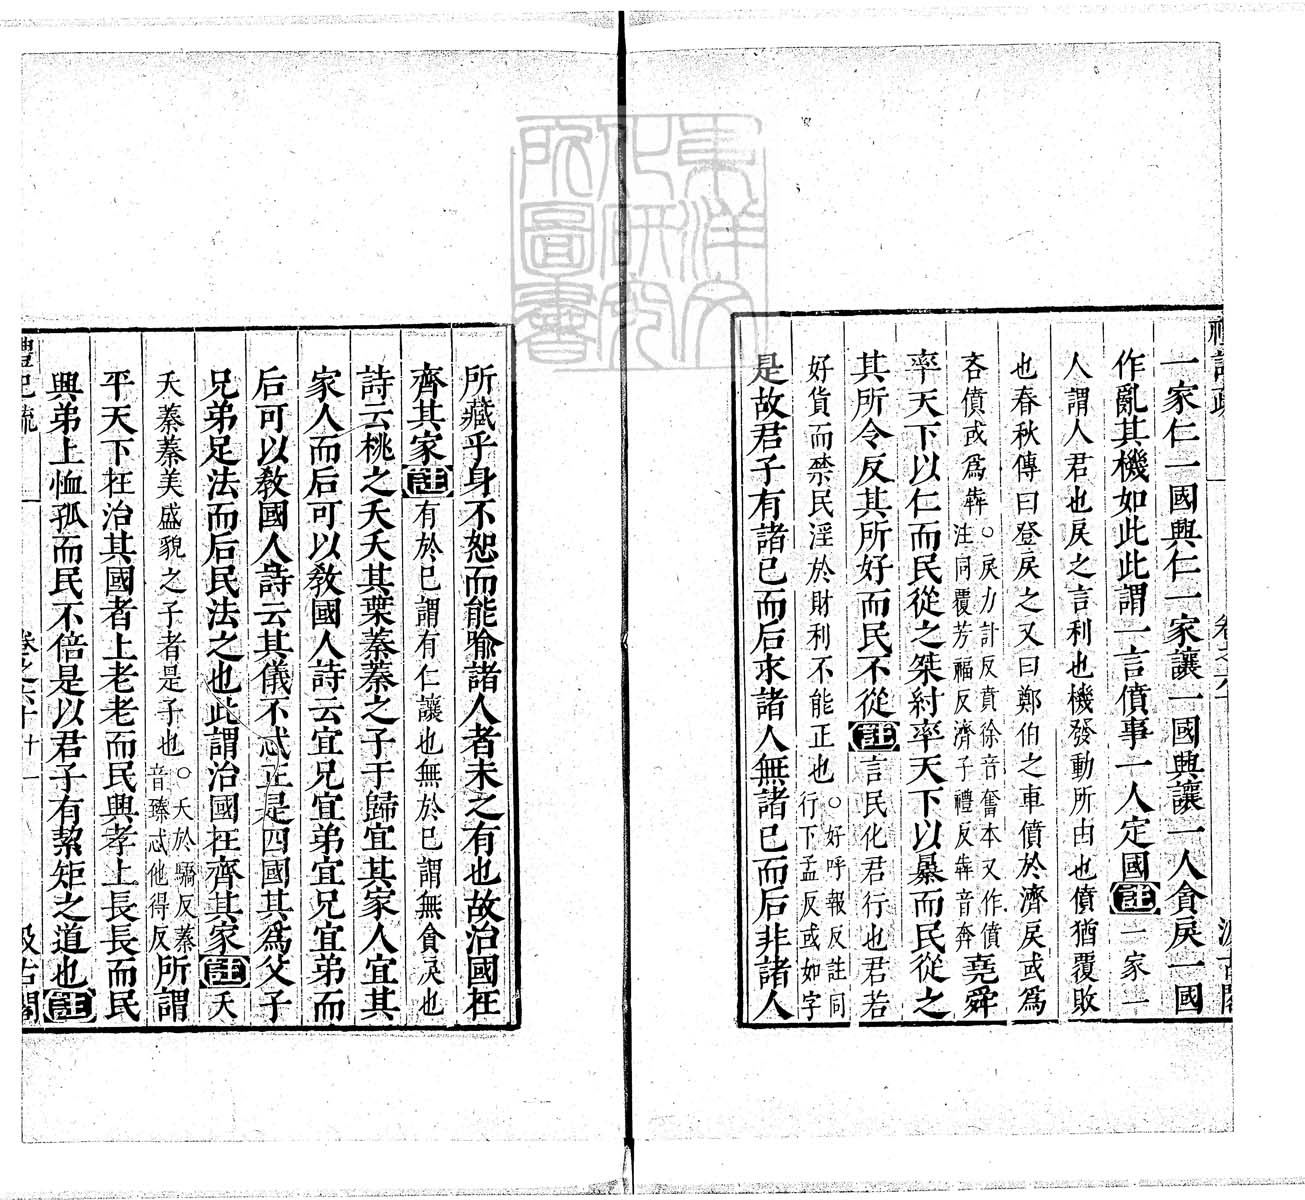 一家仁一國興仁一家讓一國興讓一人貪戾一國
作亂其機如此此謂一言僨事一人定國註一家一
人謂人君也戾之言利也機發動所由也僨猶覆敗
也春秋傳曰登戾之又曰鄭伯之車僨於濟戾或爲
吝僨或爲犇○戾力計反賁徐音奮本又作僨
注同覆芳福反濟子禮反犇音奔堯舜
率天下以仁而民從之桀紂率天下以暴而民從之
其所令反其所好而民不從註言民化君行也君若
好貨而禁民淫於財利不能正也○好呼報反註同
行下孟反或如字
是故君子有諸己而后求諸人無諸己而后非諸人
所藏乎身不恕而能喻諸人者未之有也故治國在
齊其家註有於己謂有仁讓也無於己謂無貪戾也
詩云桃之夭夭其葉蓁蓁之子于歸宜其家人宜其
家人而后可以教國人詩云宜兄宜弟宜兄宜弟而
后可以教國人詩云其儀不忒正是四國其爲父子
兄弟足法而后民法之也此謂治國在齊其家註夭
夭蓁蓁美盛貌之子者是子也○夭於驕反蓁
音臻忒他得反所謂
平天下在治其國者上老老而民興孝上長長而民
興弟上恤孤而民不倍是以君子有絜矩之道也註
禮記疏 卷之六十 十一 汲古閣
東洋文化研究所圖書